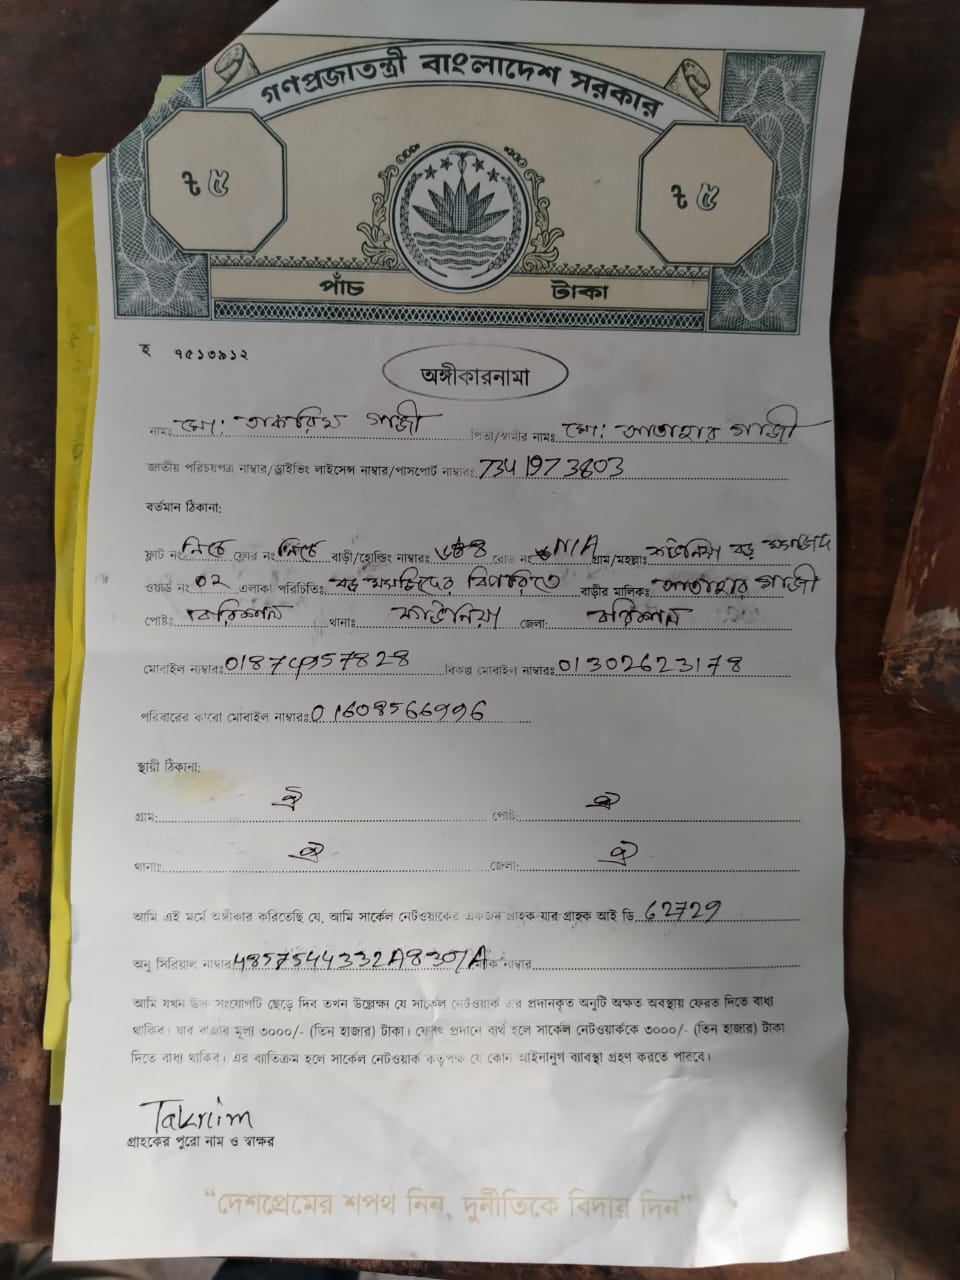 গণপ্রজাতন্ত্রী বাংলাদেশ সরকার
৳ ৫ ৳ ৫
পাঁচ টাকা
হ ৭৫১৩৯১২
অঙ্গীকারনামা
নামঃ মো: তাকরিম গাজী পিতা/স্বামীর নামঃ মো: আতাহার গাজী
জাতীয় পরিচয়পত্র নাম্বার/ড্রাইভিং লাইসেন্স নাম্বার/পাসপোর্ট নাম্বারঃ 7341973803
বর্তমান ঠিকানা:
ফ্লাট নং নিচে ফ্লোর নং নিচে বাড়ী/হোল্ডিং নাম্বারঃ রোড নং N/A গ্রাম/মহল্লাঃ কাউনিয়া বড় মসজিদ
ওয়ার্ড নং 02 এলাকা পরিচিতিঃ বড় মসজিদের বিপরিতে বাড়ীর মালিকঃ আতাহার গাজী
পোষ্টঃ বরিশাল থানাঃ কাউনিয়া জেলা: বরিশাল
মোবাইল নাম্বারঃ বিকল্প মোবাইল নাম্বারঃ 01302623178
পরিবারের কারো মোবাইল নাম্বারঃ 01608566996
স্থায়ী ঠিকানা:
গ্রাম: ঐ পোষ্ট: ঐ
থানাঃ ঐ জেলা: ঐ
আমি এই মর্মে অঙ্গীকার করিতেছি যে, আমি সার্কেল নেটওয়ার্কের একজন গ্রাহক যার গ্রাহক আই ডি 62729
অনু সিরিয়াল নাম্বার 4857544332A8307A নাম্বার
আমি যখন উক্ত সংযোগটি ছেড়ে দিব তখন উল্লেক্ষ্য যে সার্কেল নেটওয়ার্ক এর প্রদানকৃত অনুটি অক্ষত অবস্থায় ফেরত দিতে বাধ্য
থাকিব। যার বাজার মূল্য ৩০০০/- (তিন হাজার) টাকা। ফেরৎ প্রদানে ব্যর্থ হলে সার্কেল নেটওয়ার্ককে ৩০০০/- (তিন হাজার) টাকা
দিতে বাধ্য থাকিব। এর ব্যাতিক্রম হলে সার্কেল নেটওয়ার্ক কতৃপক্ষ যে কোন আইনানুগ ব্যাবস্থা গ্রহণ করতে পারবে।
Takriim
গ্রাহকের পুরো নাম ও স্বাক্ষর
“দেশপ্রেমের শপথ নিন, দুর্নীতিকে বিদায় দিন”